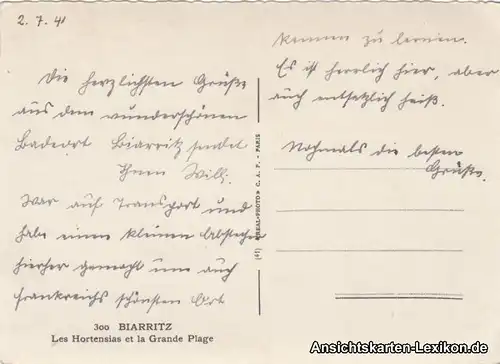 2. 7. 41
Die herzlichsten Grüße
aus dem wunderschönen
Badeort Biarritz sendet
Ihnen Willi.
War auf Transport und
habe einen kleinen Abstecher
hierher gemacht um auch
Frankreichs schönsten Ort
300 BIARRITZ
Les Hortensias et la Grande Plage
(41) «REAL-PHOTO» C. A. P. - PARIS
kennen zu lernen.
Es ist herrlich hier, aber
auch entsetzlich heiß.
Nochmals die besten
Grüße.
Ansichtskarten-Lexikon.de